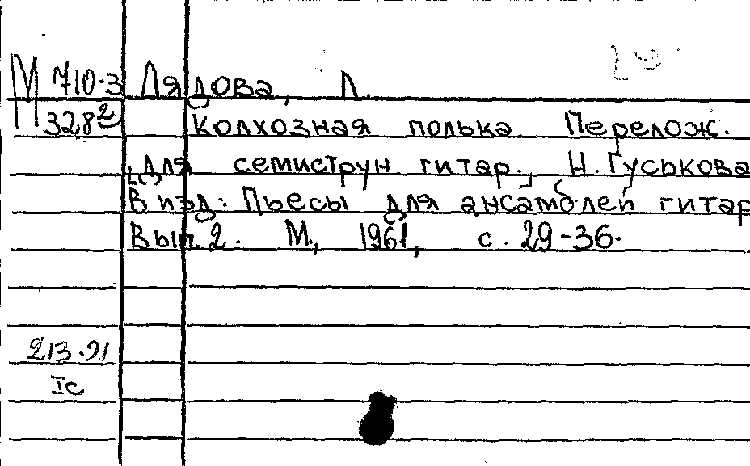 М 710-3 Лядова, Л.
328² Колхозная полька. Перелож.
для семиструн гитар., Н. Гуськова
В изд: Пьесы для ансамблей гитар
Вып. 2. М, 1961, с. 29-36.
213.91
Iс